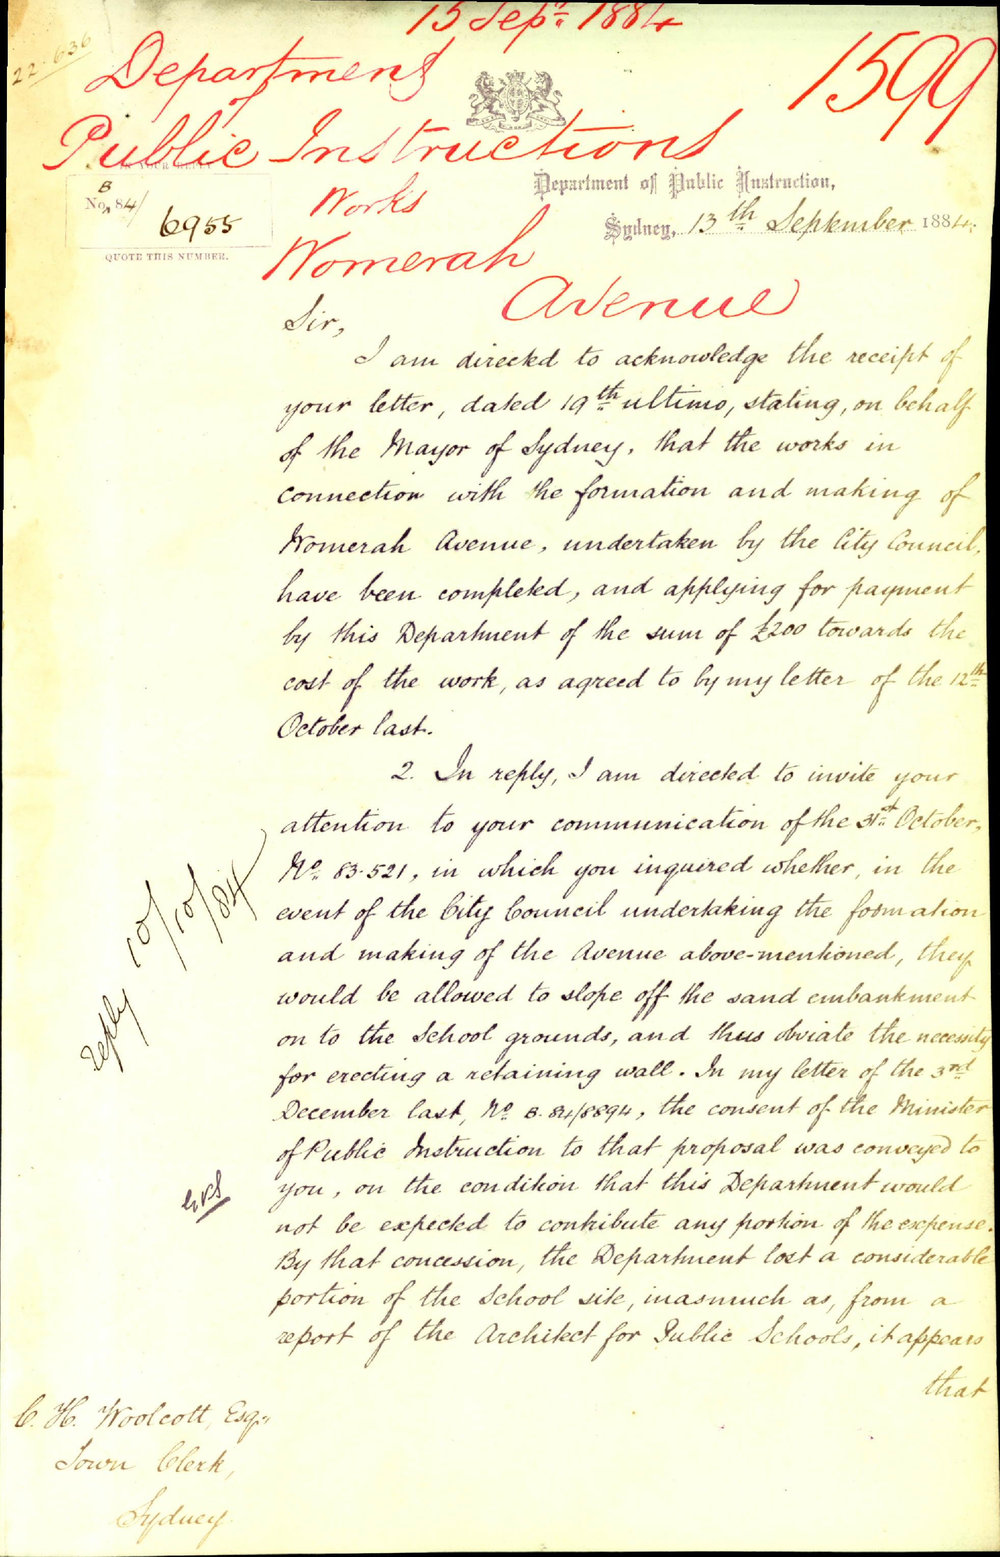 15 Sepr. 1884
22.636
Department
of
Public Instructions
1599
Works
Womerah
Avenue
B
No. 84/
6955
QUOTE THIS NUMBER.
Department of Public Instruction,
Sydney, 13th September 1884.
Sir,
I am directed to acknowledge the receipt of
your letter, dated 19th ultimo, stating, on behalf
of the Mayor of Sydney, that the works in
connection with the formation and making of
Womerah Avenue, undertaken by the City Council,
have been completed, and applying for payment
by this Department of the sum of £200 towards the
cost of the work, as agreed to by my letter of the 12th
October last.
2. In reply, I am directed to invite your
attention to your communication of the 31st October,
No. 83.521, in which you inquired whether, in the
event of the City Council undertaking the formation
and making of the Avenue above-mentioned, they
would be allowed to slope off the sand embankment
on to the School grounds, and thus obviate the necessity
for erecting a retaining wall. In my letter of the 3rd
December last, No. B.84/8894, the consent of the Minister
of Public Instruction to that proposal was conveyed to
you, on the condition that this Department would
not be expected to contribute any portion of the expense.
By that concession, the Department lost a considerable
portion of the School site, inasmuch as, from a
report of the Architect for Public Schools, it appears
that
reply 10/10/84
C. H. Woolcott, Esq.,
Town Clerk,
Sydney.